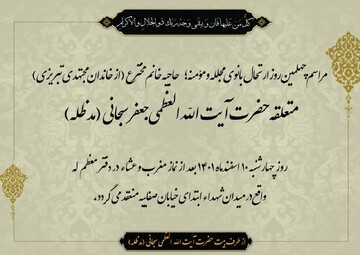 کل من علیها فان و یبقی وجه ربک ذوالجلال والاکرام
مراسم چهلمین روز ارتحال بانوی مجلله و مؤمنه؛ حاجیه خانم مخترع (از خاندان مجتهدی تبریزی)
متعلقه حضرت آیت الله العظمی جعفر سبحانی (مدظله)
روز چهارشنبه ۱۰ اسفندماه ۱۴۰۱ بعد از نماز مغرب و عشاء در دفتر معظم له
واقع در میدان شهداء ابتدای خیابان صفاییه منعقد می گردد.
از طرف بیت حضرت آیت الله العظمی سبحانی (مدظله)